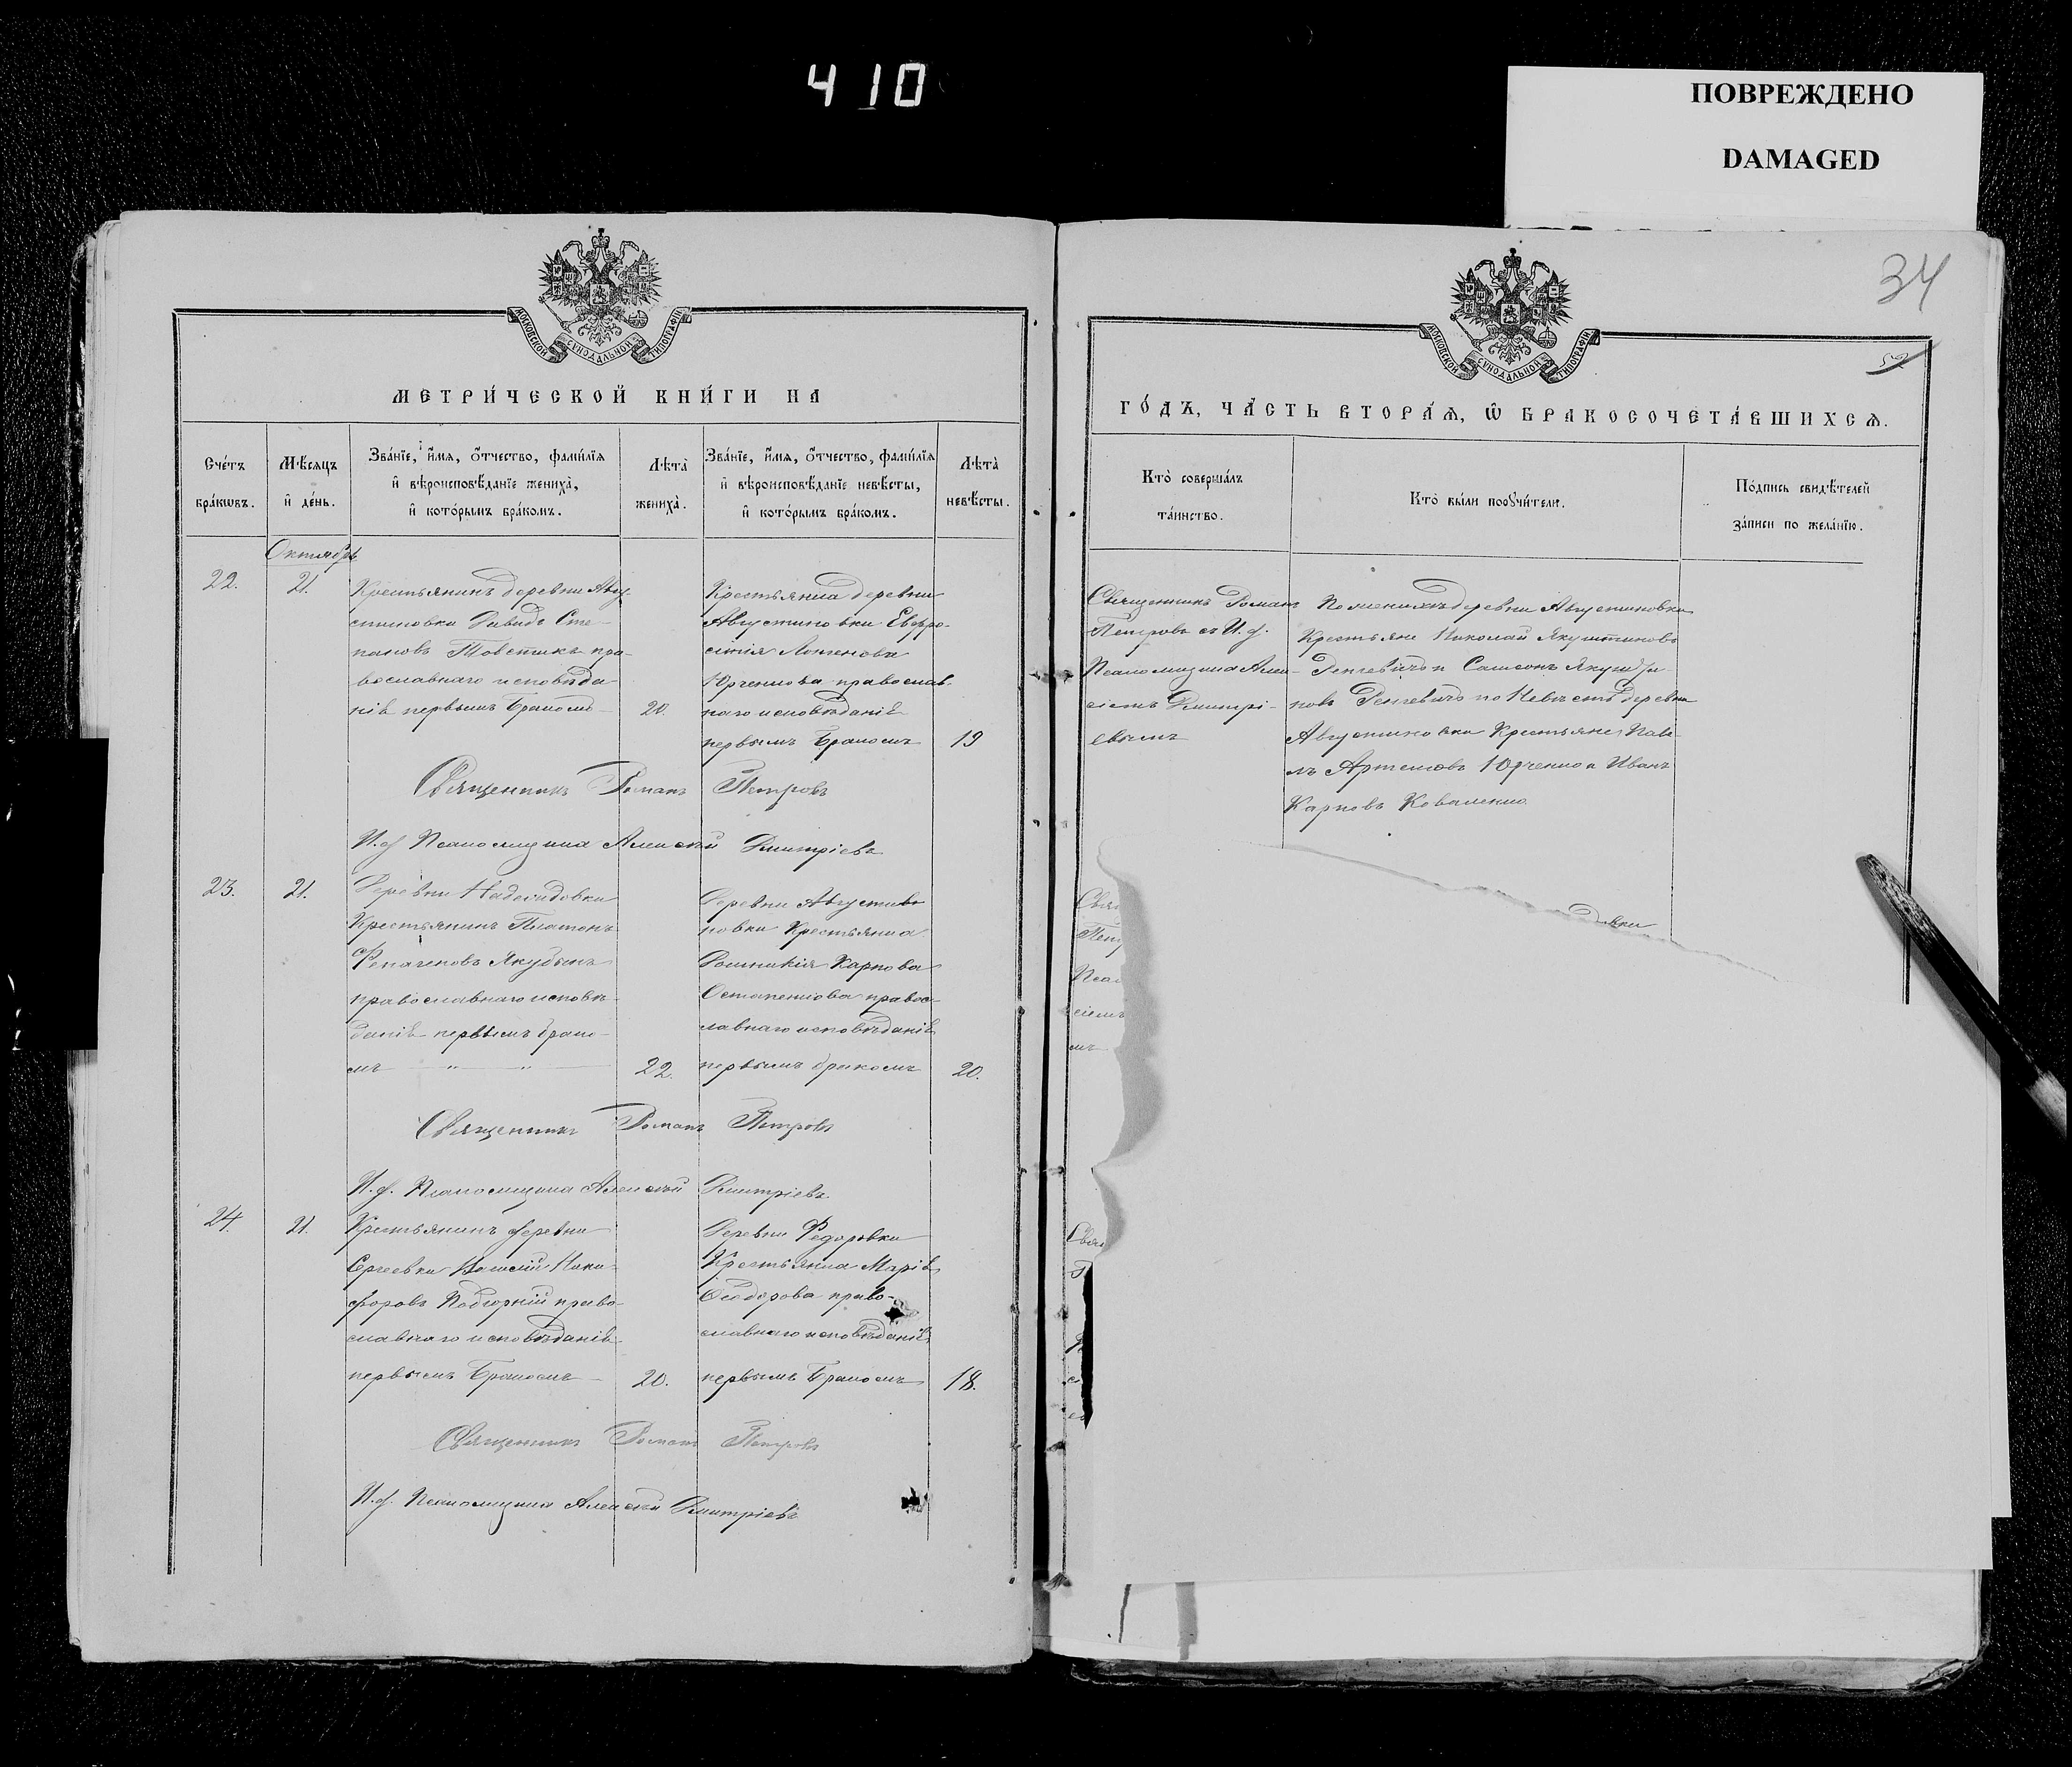 410
ПОВРЕЖДЕНО
DAMAGED
34
52
МОСКОВСКОЙ СѴНОДАЛЬНОЙ ТИПОГРАФІИ
МЕТРИ́ЧЕСКОЙ КНИ́ГИ НА
Сче́тъ бра́кѡвъ.
Мѣ́сяцъ и҆ де́нь.
Зва́нїе, и҆́мѧ, ѻ҆́тчество, фами́лїѧ и҆ вѣроисповѣ́данїе жениха̀, и҆ кото́рымъ бра́комъ.
Лѣта̀ жениха̀.
Зва́нїе, и҆́мѧ, ѻ҆́тчество, фами́лїѧ и҆ вѣроисповѣ́данїе невѣ́сты, и҆ кото́рымъ бра́комъ.
Лѣта̀ невѣ́сты.
Октябрь
22.
21.
Крестьянинъ деревни Авгу-
стиновки Давидъ Сте-
пановъ Товстикъ пра-
вославнаго исповѣда
нія первымъ бракомъ
20.
Крестьянка деревни
Августиновки Евфро-
синія
Юрченкова православ-
наго исповѣданія
первымъ бракомъ
19
Священникъ Романъ Петровъ
И. д. Псаломщика Алексѣй Дмитріевъ
23.
21.
Деревни
Крестьянинъ Платонъ
Якубынъ
православнаго исповѣ-
данія первымъ брако-
мъ
22.
Деревни Августи
новки Крестьянка
Домникія Карпова
Остапенкова правос-
лавнаго исповѣданія
первымъ бракомъ
20.
Священникъ Романъ Петровъ
И. д. Псаломщика Алексѣй Дмитріевъ
24.
21.
Крестьянинъ деревни
Сергеевки Василій Ники-
форовъ Подгорній право-
славнаго исповѣданія
первымъ бракомъ
20.
Деревни Федоровки
Крестьянка Марія
Ѳеодорова право-
славнаго исповѣданія
первымъ бракомъ
18.
Священникъ Романъ Петровъ
И. д. Псаломщика Алексѣй Дмитріевъ
МОСКОВСКОЙ СѴНОДАЛЬНОЙ ТИПОГРАФІИ
ГО́ДЪ, ЧА́СТЬ ВТОРА́Ѧ, Ѡ҆ БРАКОСОЧЕТА́ВШИХСѦ.
Кто̀ соверша́лъ та́инство.
Кто̀ бы́ли порꙋчи́тели.
По́дпись свидѣ́телей за́писи по жела́нїю.
Священникъ Романъ
Петровъ съ И. д.
Псаломщика Алек-
сѣемъ Дмитрі-
евымъ
По женихѣ деревни Августиновки
Крестьяне Николай
и Самсонъ
по Невѣстѣ деревни
Августиновки Крестьяне Паве-
лъ Артемовъ Юрченко и Иванъ
Карповъ Коваленко
Свящ
Пет
Псал
сѣемъ
мъ
довки
Свящ